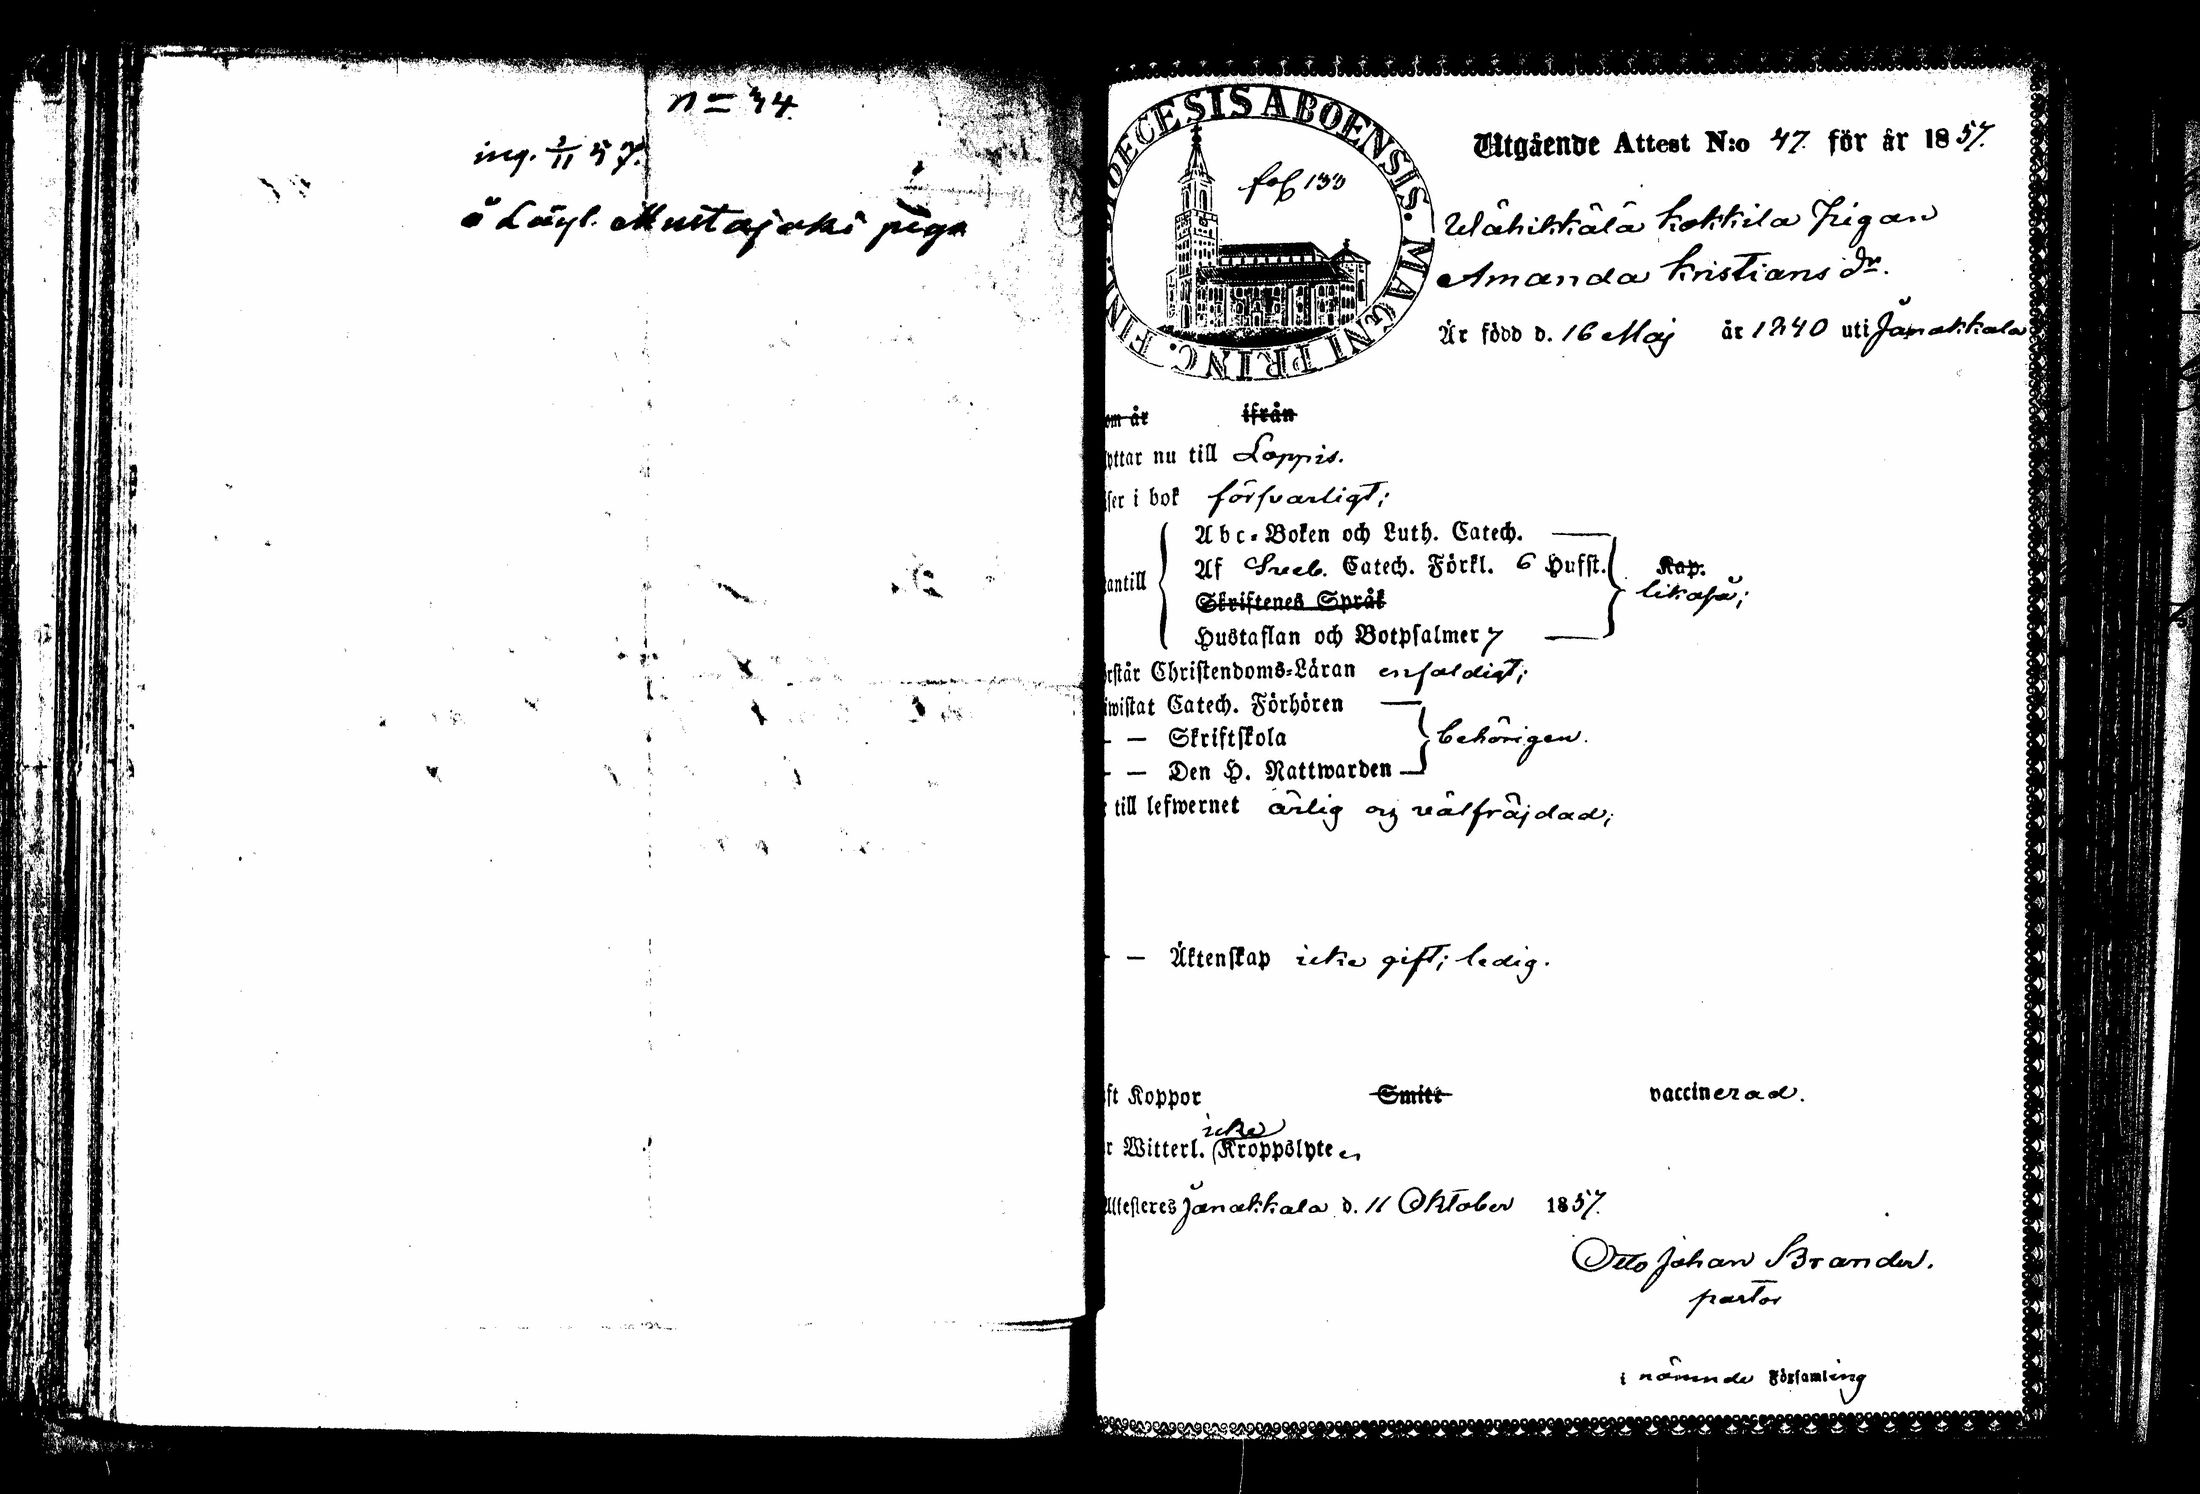 n = 44.
ing. 2/11 57.
å Läyl. Mustajoki piga
DIOECESIS ABOENSIS. MAGNI PRINC. FINL.
fol 133
Utgående Attest N:o 47. för år 1857.
Wähikkälä Kokkila Pigan
Amanda Kristians dr.
Är född d. 16 Maj år 1840 uti Janakkala
om år ifrån
yttar nu till Loppis.
äser i bok försvarligt;
Abc-Boken och Luth. Catech.
Af Sveb. Catech. Förkl. 6 Hufst. Kap.
antill likaså;
Skriftenes Språk
Hustaflan och Botpsalmer 7
rstår Christendoms-Läran enfaldigt;
iwistat Catech. Förhören
— — Skriftskola behörigen.
— — Den H. Nattwarden
e till lefwernet ärlig og välfräjdad;
— — Äktenskap icke gift; ledig.
ft Koppor Smitt vaccinerad.
icke
r Witterl. Kroppslyte
Attesteres Janakkala d. 11 Oktober 1857.
Otto Johan Brander.
pastor
i nämnde Församling